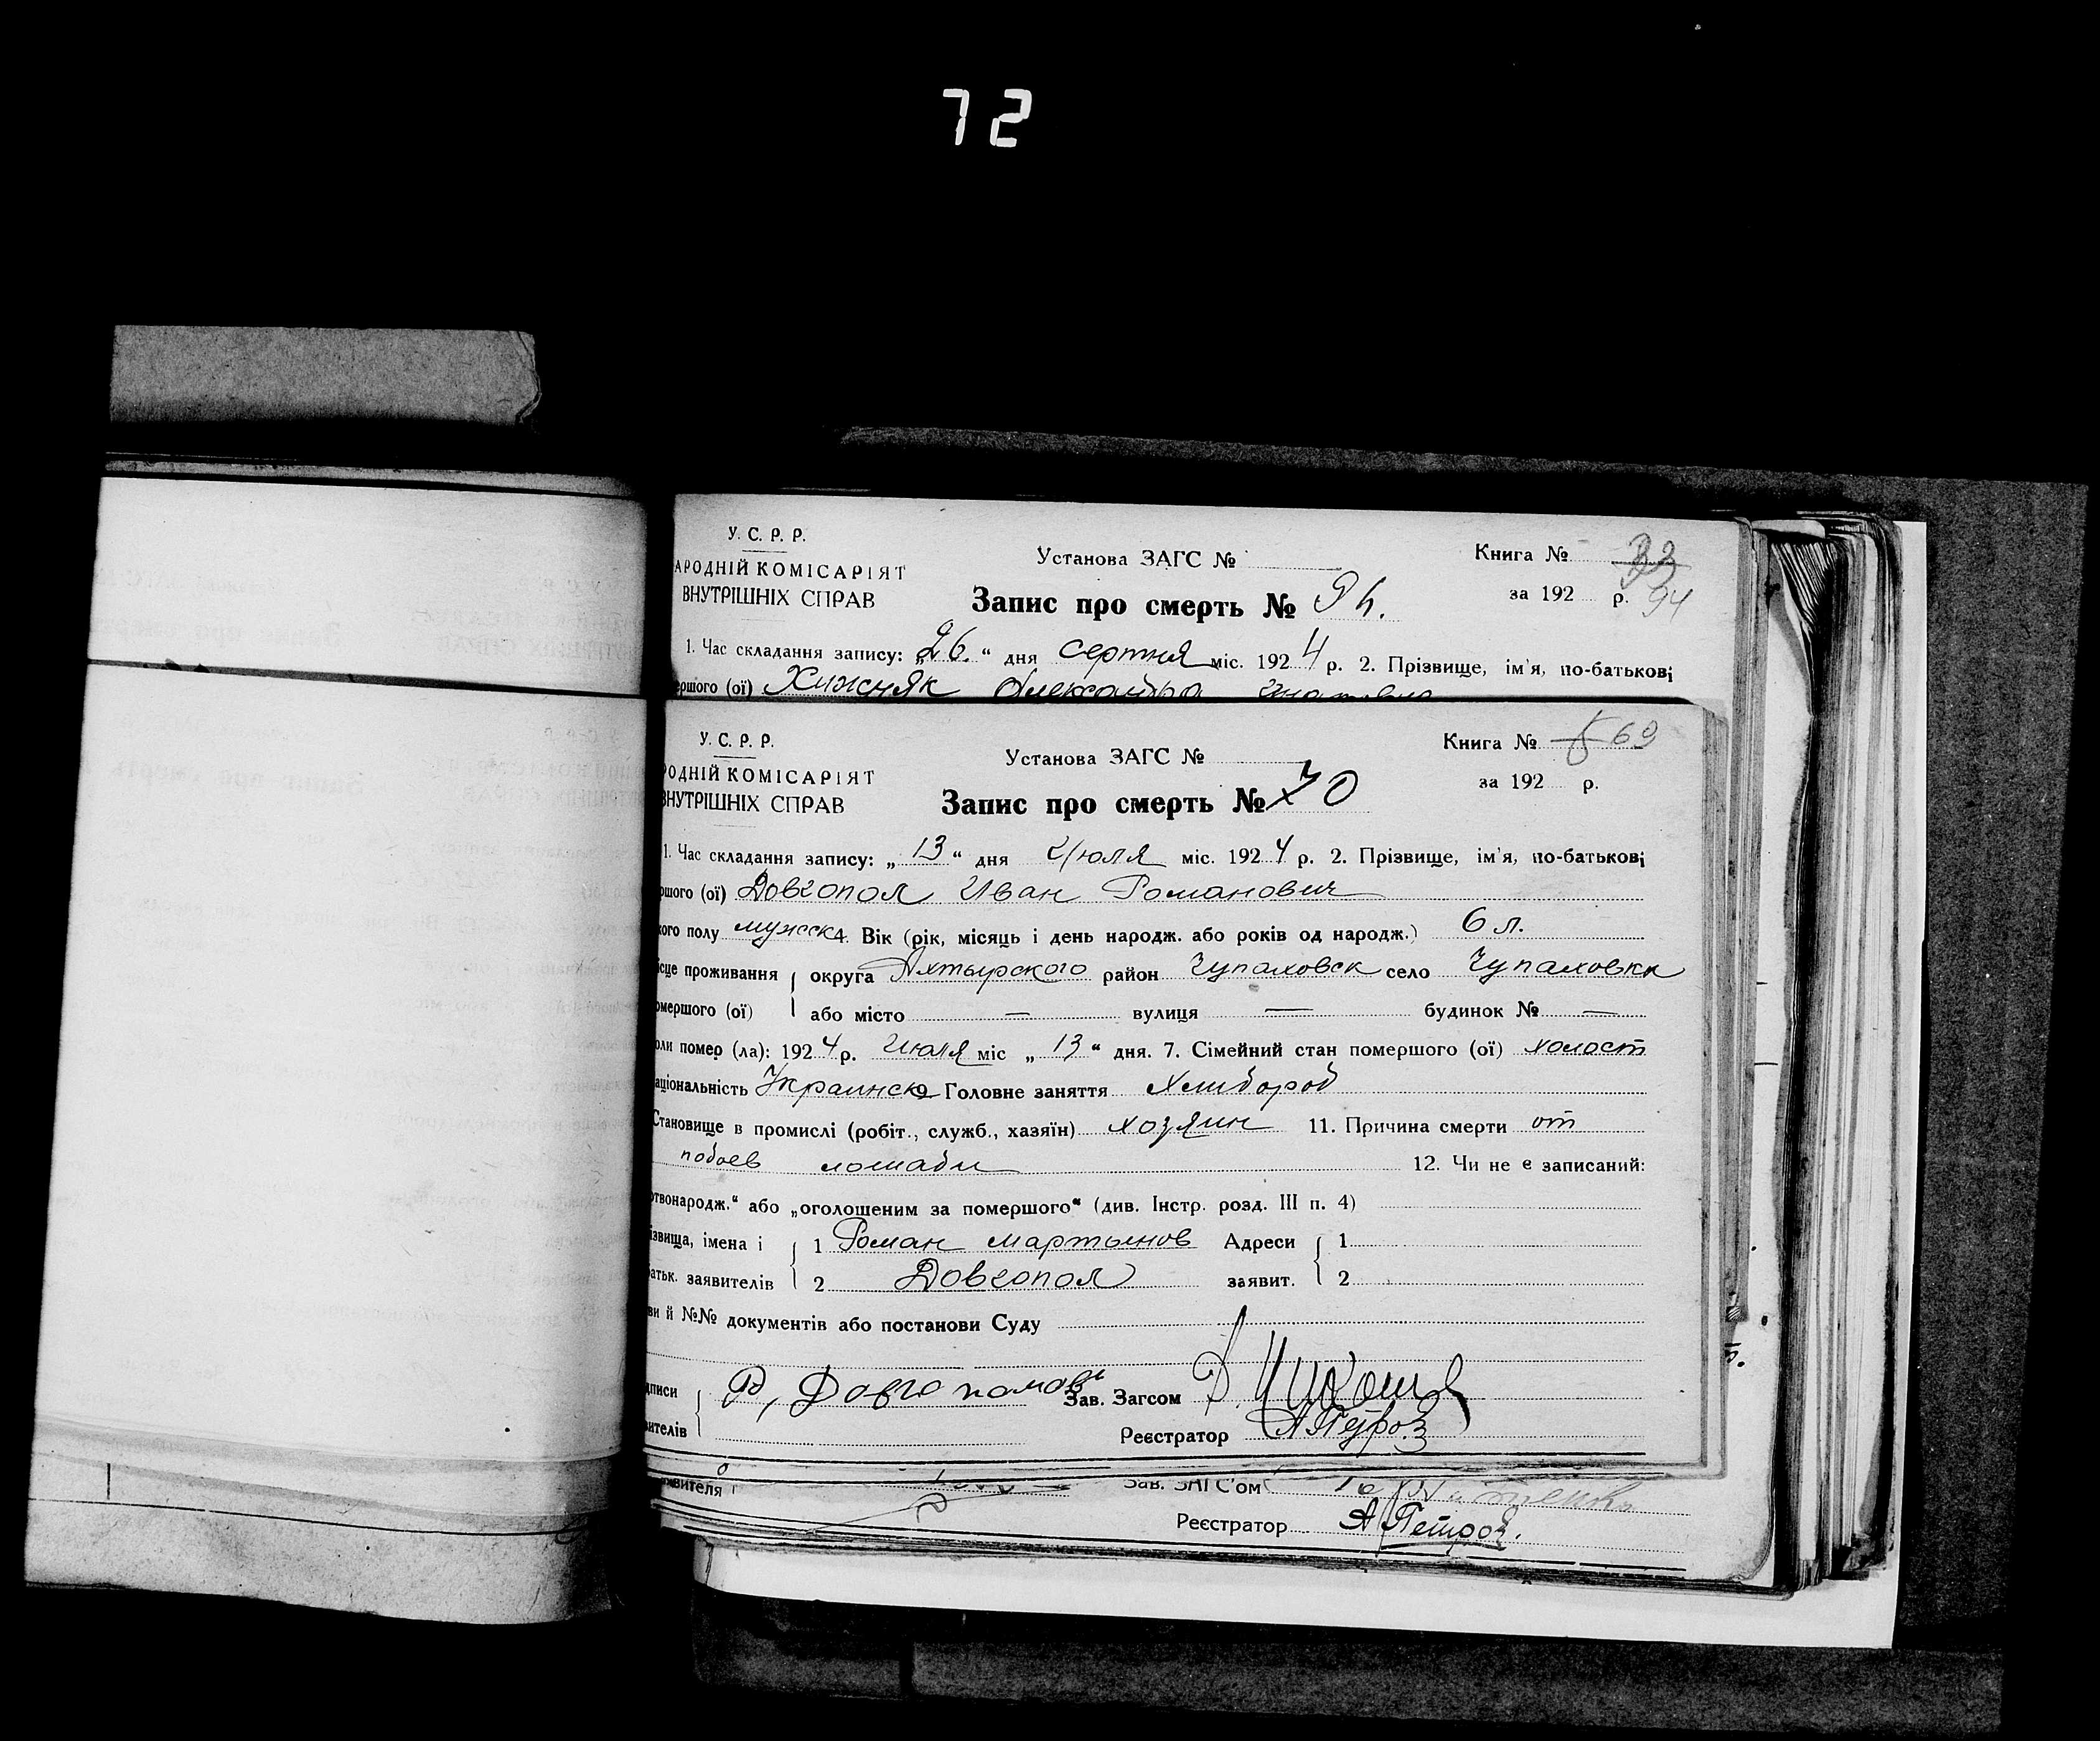 72
У. С. Р. Р.
АРОДНІЙ КОМІСАРІЯТ
ВНУТРІШНІХ СПРАВ
Установа ЗАГС №
Запис про смерть № 94.
Книга № 33
за 192 р. 94
1. Час складання запису: „26.“ дня серпня міс. 1924 р. 2. Прізвище, ім'я, по-батькові
ершого (ої) Хижняк Олександра
У. С. Р. Р.
РОДНІЙ КОМІСАРІЯТ
ВНУТРІШНІХ СПРАВ
Установа ЗАГС №
Запис про смерть № 70
Книга № 69
за 192 р.
1. Час складання запису: „13“ дня Июля міс. 1924 р. 2. Прізвище, ім'я, по-батькові
ршого (ої) Довгопол Иван Романович
кого полу мужск 4. Вік (рік, місяць і день народж. або років од народж.) 6 л.
ісце проживання округа Ахтырского район Чупаховск село Чупаховка
омершого (ої) або місто — вулиця — будинок № —
оли помер (ла): 1924 р. Июля міс „13“ дня. 7. Сімейний стан помершого (ої) холост
аціональність Украинск Головне заняття Хлибороб
Становище в промислі (робіт., служб., хазяїн) хозяин 11. Причина смерти от
побоев лошади 12. Чи не є записаний:
ртвонародж.“ або „оголошеним за помершого“ (див. Інстр. розд. III п. 4)
ізвища, імена і 1 Роман Мартынов Адреси 1
батьк. заявителів 2 Довгопол заявит. 2
ви й №№ документів або постанови Суду
дписи Р, Довгополов Зав. Загсом
вителів Реєстратор А Петров
явителя Зав. ЗАГС'ом
Реєстратор А Петров.